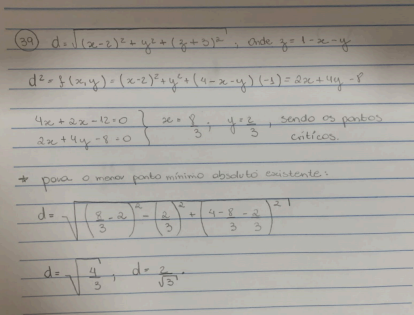 39 d = √(x-2)² + y² + (z+3)², onde z = 1-x-y
d² = f(x,y) = (x-2)² + y² + (4-x-y)(-1) = 2x+4y-8
4x+2x-12=0 } x = 8/3; y = 2/3, sendo os pontos
2x+4y-8=0 críticos.
* para o menor ponto mínimo absoluto existente:
d = √(8/3 - 2)² - (2/3)² + (4-8/3-2/3)²
d = √4/3; d = 2/√3.